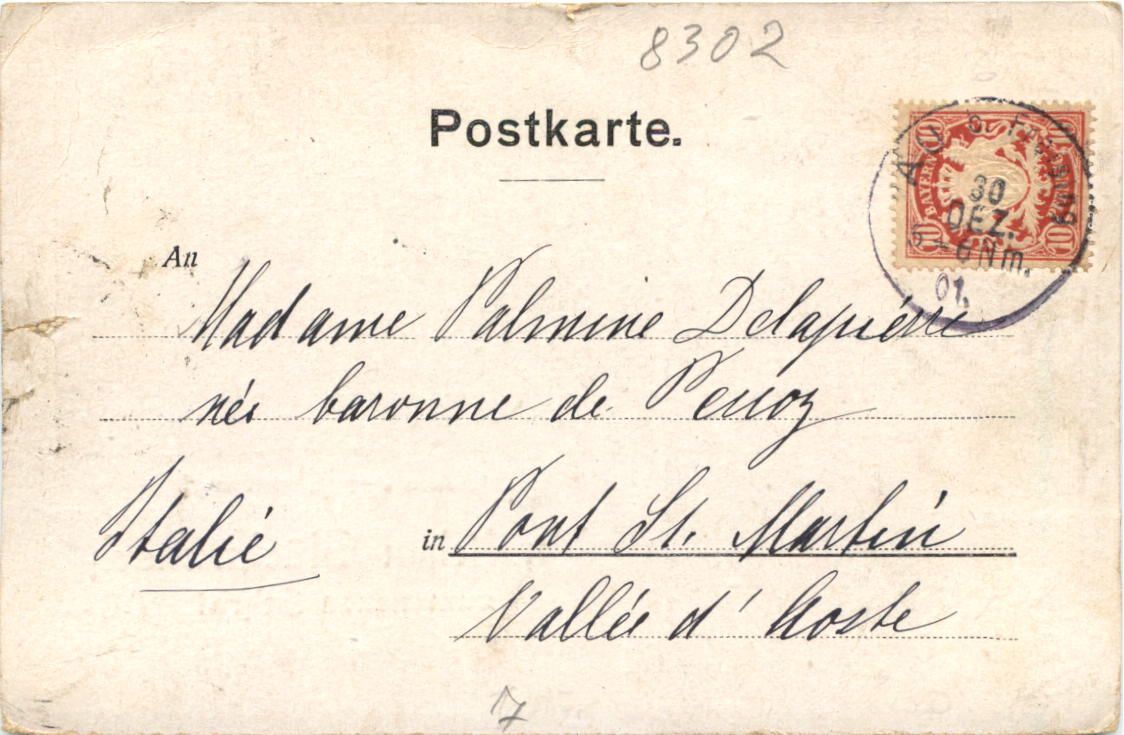 8302
Postkarte.
10 10
BAYERN
10 10
30
DEZ.
5-6 Nm.
01.
An
Madame Palmine Delapierre
née baronne de Perroz
Italie in Pont St. Martin
Vallée d'Aoste
7